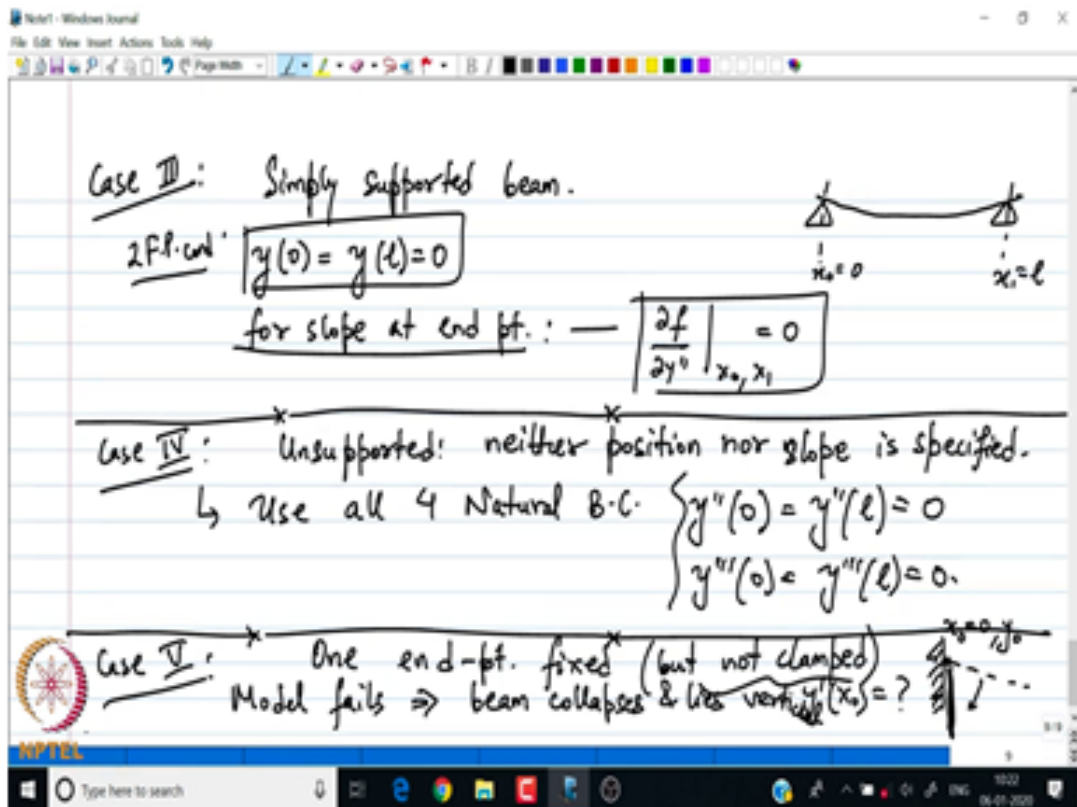 Note1 - Windows Journal
File Edit View Insert Actions Tools Help
Page Width
B I
Case III: Simply supported beam.
2 F.P. cond: y(0) = y(l) = 0
x₀ = 0
x₁ = l
for slope at end pt. : — ∂f/∂y'' |x₀, x₁ = 0
Case IV: Unsupported: neither position nor slope is specified.
↳ Use all 4 Natural B.C. { y''(0) = y''(l) = 0
y'''(0) = y'''(l) = 0.
x₀ = 0, y₀
Case V: One end-pt. fixed (but not clamped)
Model fails ⇒ beam collapses & lies (x₀) = ?
NPTEL
9/9
9
Type here to search
ENG
10:22
06-01-2020